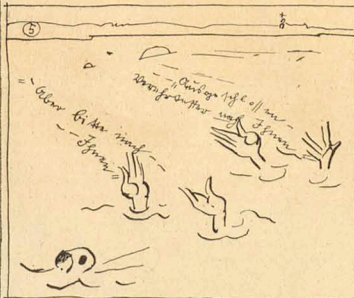 5
„Aber bitte nach
Ihnen"
„Ausgeschlossen
Verehrtester nach Ihnen